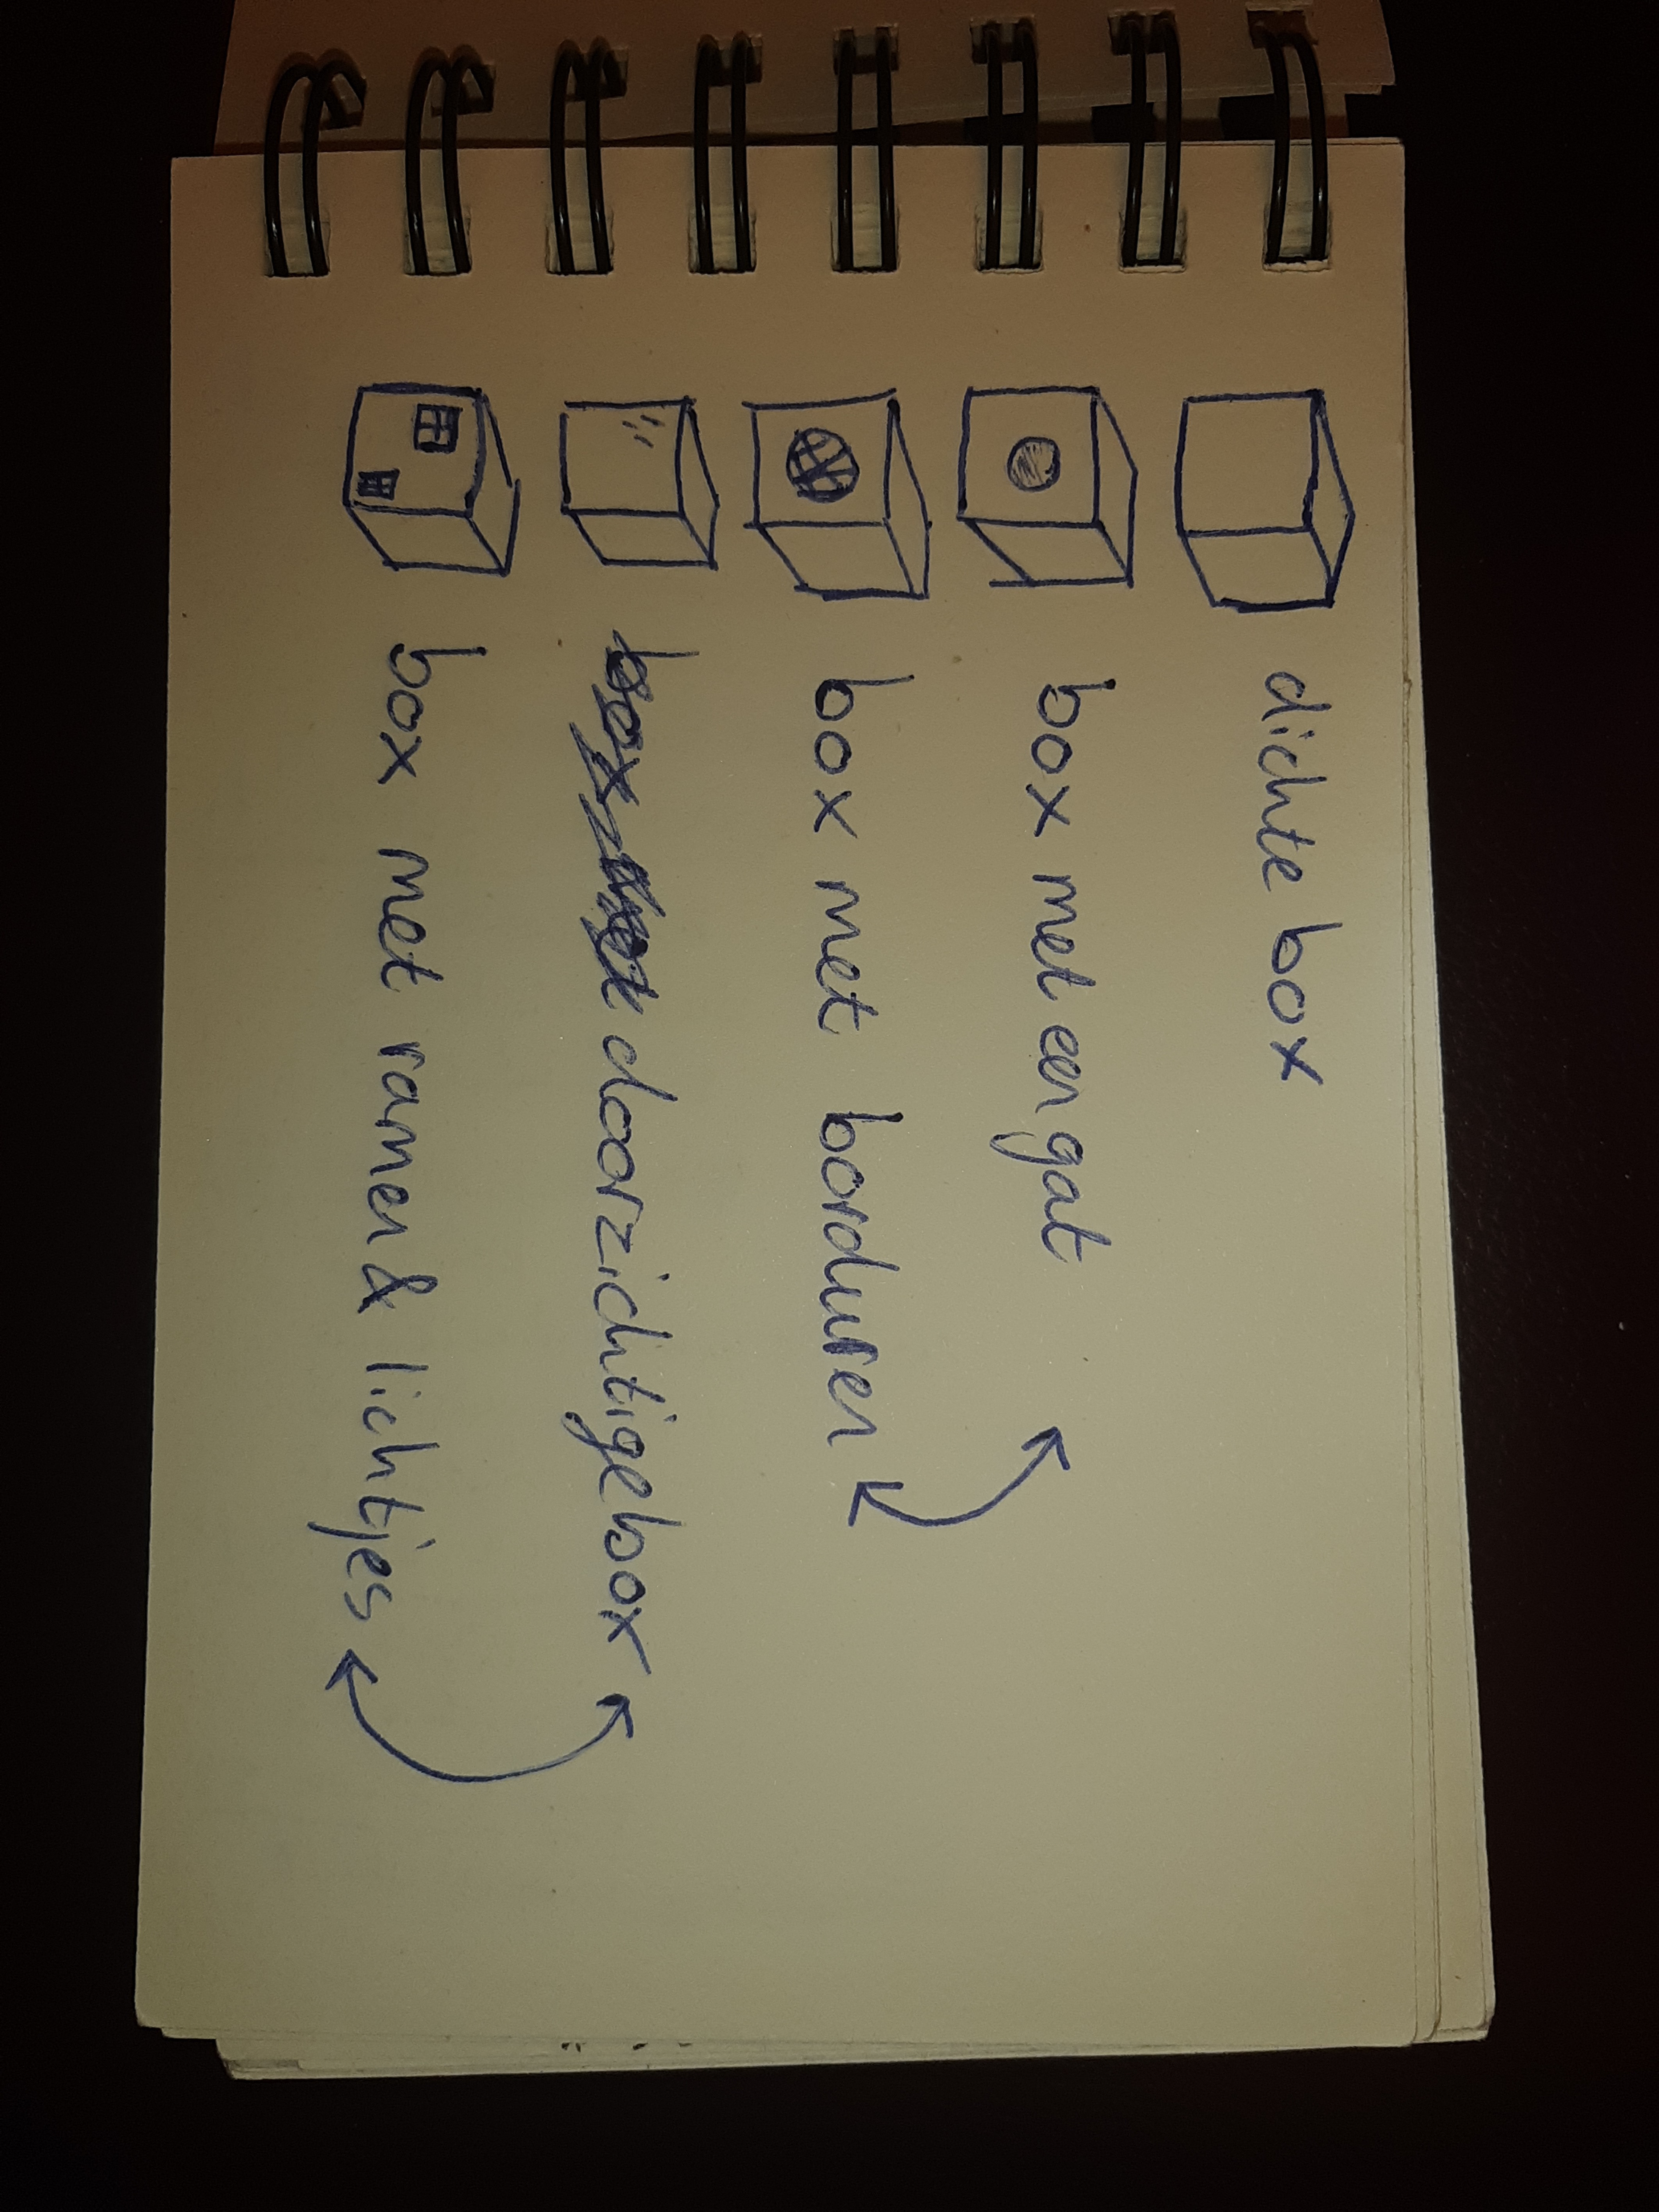 dichte box
box met een gat
box met borduren
doorzichtige box
box met ramen & lichtjes